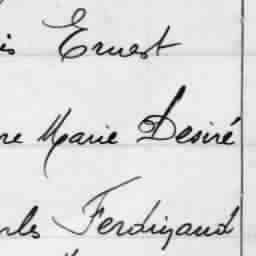 is Ernest
re Marie Desiré
rles Ferdinand